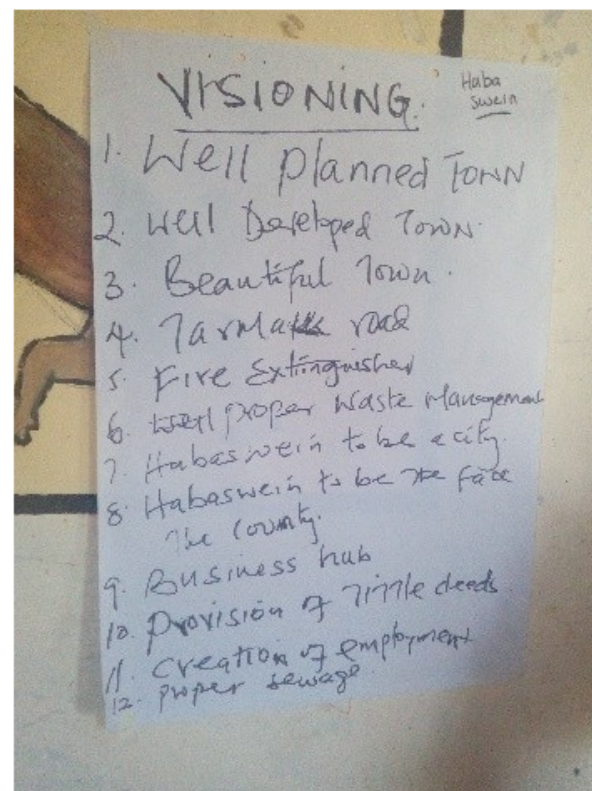 VISIONING.
Haba
Swein
1. Well planned TOWN
2. Well Developed TOWN.
3. Beautiful Town.
4. Tarmak road
5. Fire Extinguisher
6. proper Waste Management
7. Habaswein to be a city.
8. Habaswein to be the face
The county.
9. Business hub
10. Provision of Tittle deeds
11. Creation of employment
12. proper sewage.